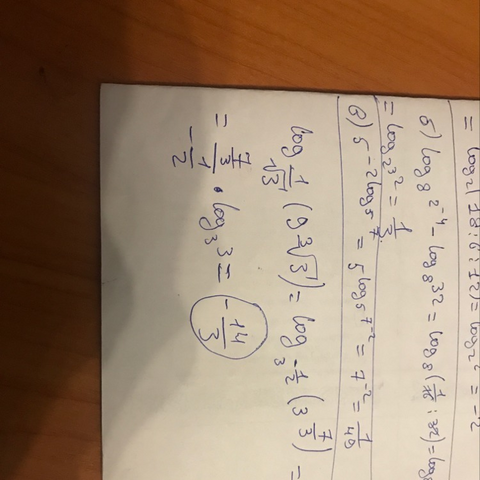 = log₂(18:6:12) = log₂ = -2
б) log₈ 2⁻⁴ - log₈ 32 = log₈(1/16 : 32) = log₈
= log₂3² = 1/3
в) 5^(-2log₅7) = 5^(log₅7⁻²) = 7⁻² = 1/49
log_(1/√3) (9∛3) = log_(3^(-1/2)) (3^(7/3)) =
= (7/3)/(-1/2) · log₃3 = -14/3